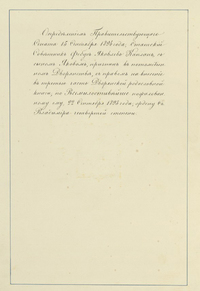 Определеніемъ Правительствующаго
Сената 18 Сентября 1895 года, Статскій
Совѣтникъ Яковлевъ съ
сыномъ признанъ въ потомствен
номъ Дворянствѣ, съ правомъ на внесеніе
въ третью часть Дворянской родословной
книги, по Всемилостивѣйше пожалован
ному ему, 22 Сентября года, ордену Св.
Владиміра четвертой степени.